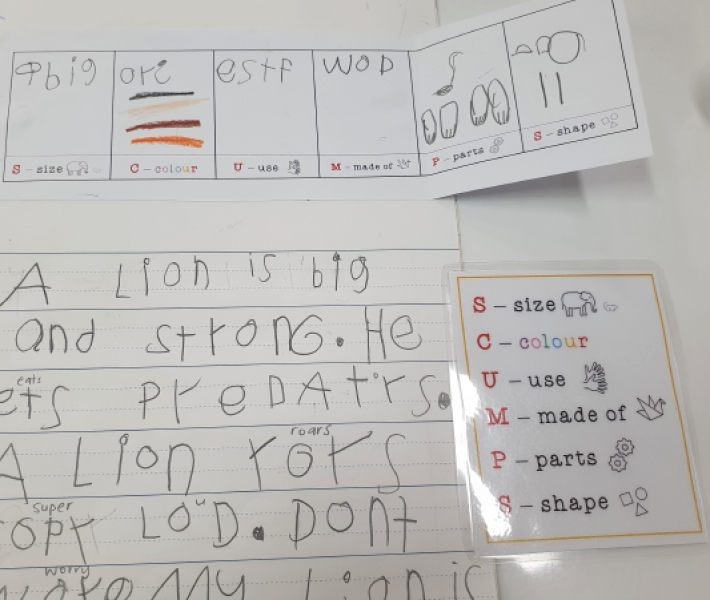 big ori estf WOD
S – size C – colour U – use M – made of P – parts S – shape
A Lion is big
and strong. He
eats
ets PreDAtrs.
roars
A Lion rors
super
LOuD. DOnt
worry
My Lion is
S – size
C – colour
U – use
M – made of
P – parts
S – shape